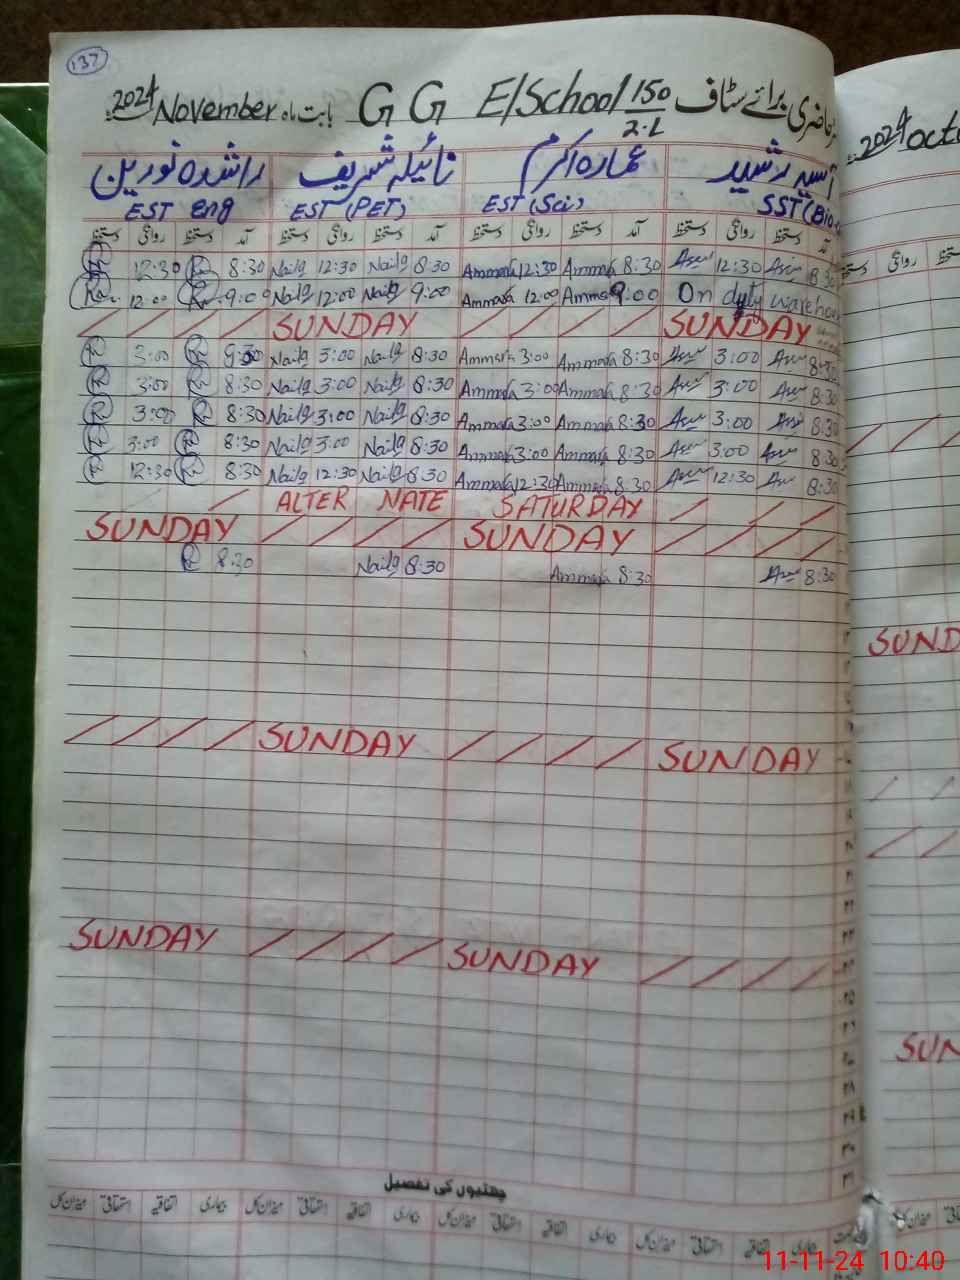 137
حاضری برائے سٹاف G G E/School 150/2.L بابت ماہ November 2024
آسیہ رشید عمارہ اکرم نائیلہ شریف راشدہ نورین
SST(Bio EST(Sci) EST(PET) EST Eng
آمد دستخط روانگی دستخط آمد دستخط روانگی دستخط آمد دستخط روانگی دستخط آمد دستخط روانگی دستخط
R 12:30 R 8:30 Naila 12:30 Naila 8:30 Ammara 12:30 Ammara 8:30 Asia 12:30 Asia 8:30
R 12:00 R 9:00 Naila 12:00 Naila 9:00 Ammara 12:00 Ammara 9:00 On duty warehouse
SUNDAY SUNDAY
R 3:00 R 8:30 Naila 3:00 Naila 8:30 Ammara 3:00 Ammara 8:30 Asia 3:00 Asia 8:30
R 3:00 R 8:30 Naila 3:00 Naila 8:30 Ammara 3:00 Ammara 8:30 Asia 3:00 Asia 8:30
R 3:00 R 8:30 Naila 3:00 Naila 8:30 Ammara 3:00 Ammara 8:30 Asia 3:00 Asia 8:30
R 3:00 R 8:30 Naila 3:00 Naila 8:30 Ammara 3:00 Ammara 8:30 Asia 3:00 Asia 8:30
R 12:30 R 8:30 Naila 12:30 Naila 8:30 Ammara 12:30 Ammara 8:30 Asia 12:30 Asia 8:30
ALTER NATE SATURDAY
SUNDAY SUNDAY
R 8:30 Naila 8:30 Ammara 8:30 Asia 8:30
SUNDAY SUNDAY
SUNDAY SUNDAY
چھٹیوں کی تفصیل
بیماری اتفاقیہ استحقاقی میزان کل بیماری اتفاقیہ استحقاقی میزان کل بیماری اتفاقیہ استحقاقی میزان کل بیماری اتفاقیہ استحقاقی میزان کل
2024 octo
روانگی
SUND
SUN
11-11-24 10:40